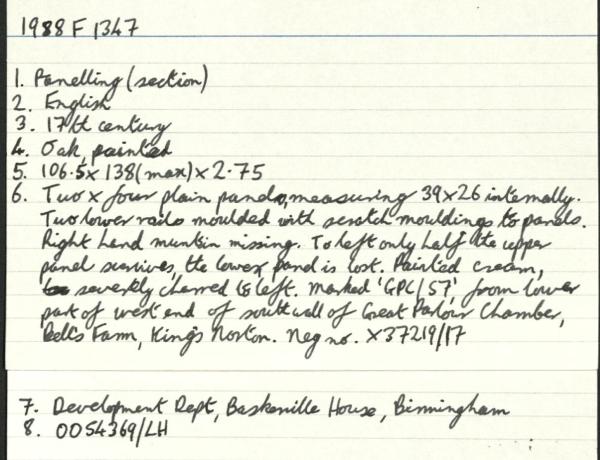 1988 F 1347
1. Panelling (section)
2. English
3. 17th century
4. Oak, painted
5. 106.5 x 138 (max) x 2.75
6. Two x four plain panels, measuring 39 x 26 internally.
Two lower rails moulded with scratch mouldings to panels.
Right hand muntin missing. To left only half the upper
panel survives, the lower panel is lost. Painted cream,
severely charred to left. Marked 'GPC/57', from lower
part of west end of south wall of Great Parlour Chamber,
Bell's Farm, King's Norton. Neg no. X37219/17
7. Development Dept, Baskerville House, Birmingham
8. 0054369/LH